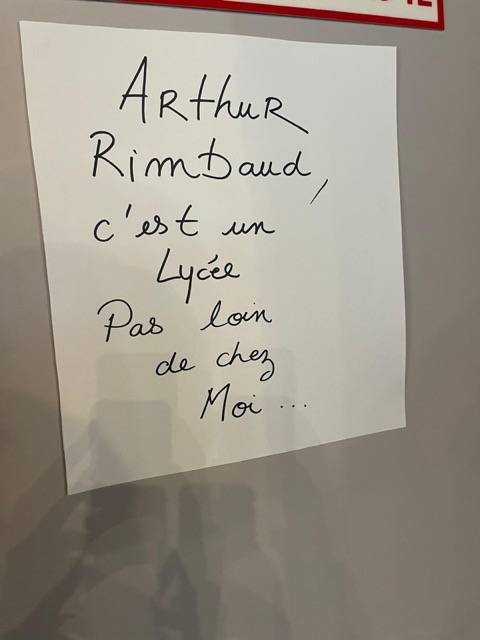 Arthur
Rimbaud,
c'est un
Lycée
Pas loin
de chez
Moi ...